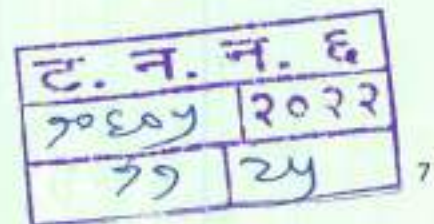 ट. न. न. ६
१०६०५ २०२२
११ २५
7